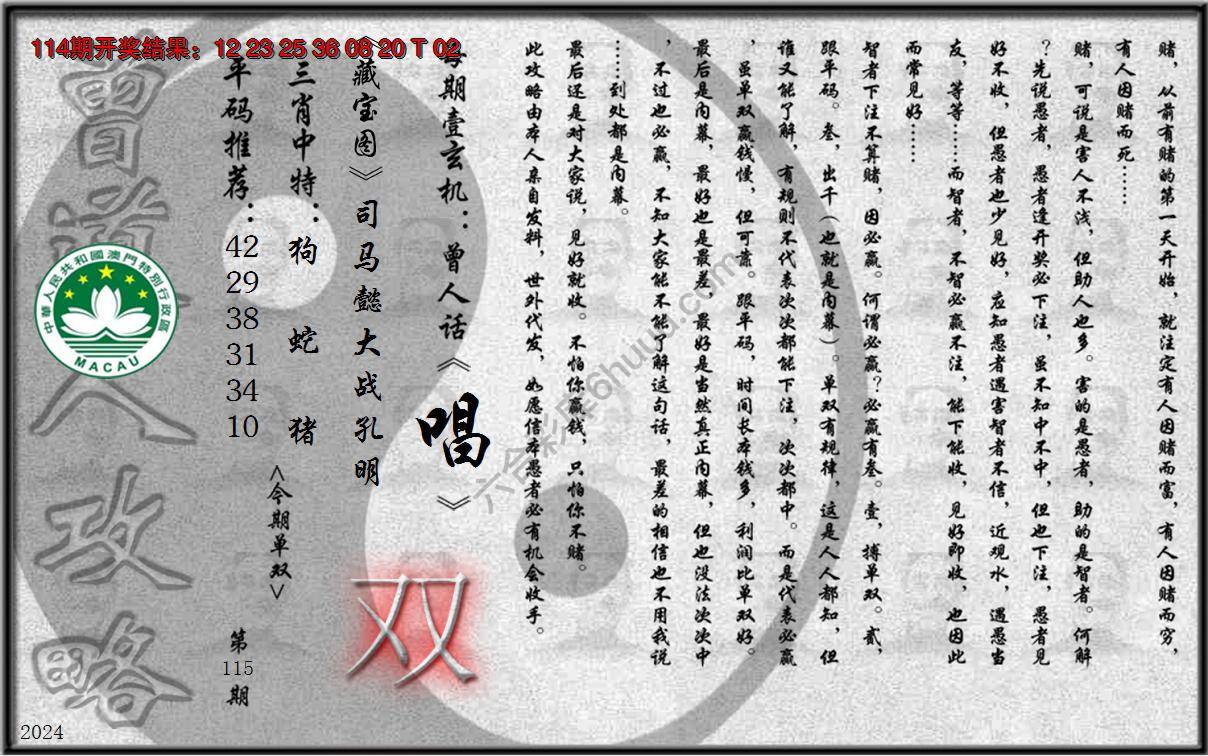 114期开奖结果：12 23 25 36 08 20 T 02
赌，从前有赌的第一天开始，就注定有人因赌而富，有人因赌而穷，
有人因赌而死……
赌，可说是害人不浅，但助人也多。害的是愚者，助的是智者。何解
？先说愚者，愚者逢开奖必下注，虽不知中不中，但也下注，愚者见
好不收，但愚者也少见好，应知愚者遇害智者不信，近观水，遇愚当
友，等等……而智者，不智必赢不注，能下能收，见好即收，也因此
而常见好……
智者下注不算赌，因必赢。何谓必赢？必赢有叁。壹，搏单双。贰，
跟平码。叁，出千（也就是内幕）。单双有规律，这是人人都知，但
谁又能了解，有规则不代表次次都能下注，次次都中。而是代表必赢
，虽单双赢钱慢，但可靠。跟平码，时间长本钱多，利润比单双好。
最后是内幕，最好也是最差，最好是当然真正内幕，但也没法次次中
，不过也必赢，不知大家能不能了解这句话，最差的相信也不用我说
……到处都是内幕。
最后还是对大家说，见好就收。不怕你赢钱，只怕你不赌。
此攻略由本人亲自发料，世外代发，如愿信本愚者必有机会收手。
每期壹玄机：曾人话《唱》
《藏宝图》司马懿大战孔明
双
三肖中特：狗 蛇 猪
<今期单双>
平码推荐：42 29 38 31 34 10
第115期
曾道人攻略
中華人民共和國澳門特別行政區
MACAU
2024
六合彩库6huuu.com